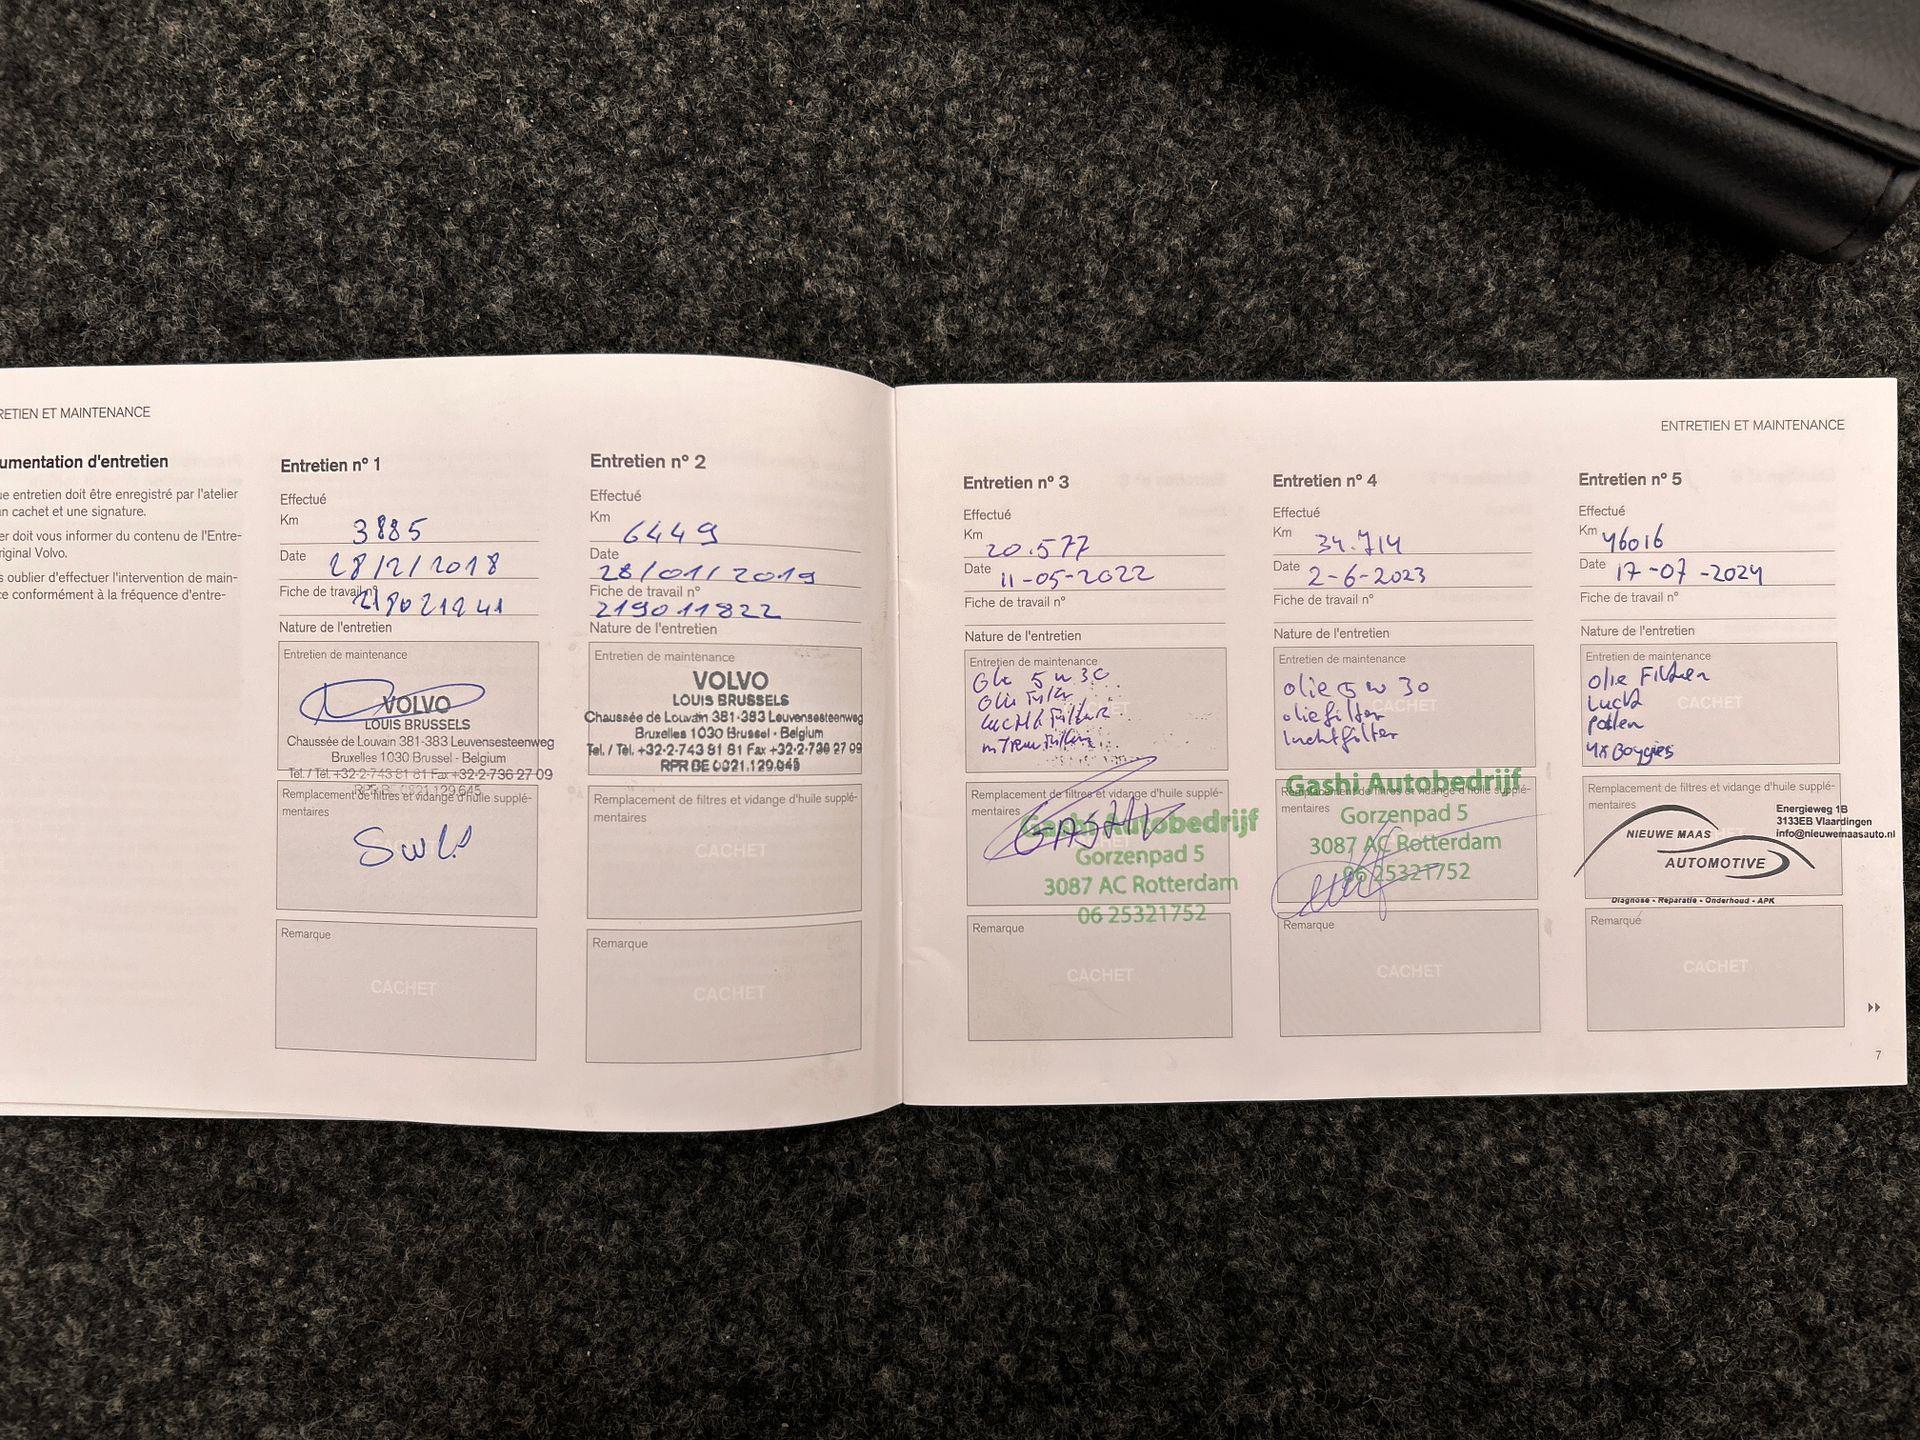 RETIEN ET MAINTENANCE
umentation d'entretien
ue entretien doit être enregistré par l'atelier
un cachet et une signature.
er doit vous informer du contenu de l'Entre-
riginal Volvo.
s oublier d'effectuer l'intervention de main-
ce conformément à la fréquence d'entre-
Entretien n° 1
Effectué
Km 3885
Date 28/2/2018
Fiche de travail n°
Nature de l'entretien
Entretien de maintenance
VOLVO
LOUIS BRUSSELS
Chaussée de Louvain 381-383 Leuvensesteenweg
Bruxelles 1030 Brussel - Belgium
Tel. / Tél. +32-2-743 81 81 Fax +32-2-736 27 09
Remplacement de filtres et vidange d'huile supplé-
mentaires
Remarque
CACHET
Entretien n° 2
Effectué
Km 6449
Date 28/01/2019
Fiche de travail n° 219011822
Nature de l'entretien
Entretien de maintenance
VOLVO
LOUIS BRUSSELS
Chaussée de Louvain 381-383 Leuvensesteenweg
Bruxelles 1030 Brussel - Belgium
Tel. / Tél. +32-2-743 81 81 Fax +32-2-736 27 09
RPR BE 0821.129.645
Remplacement de filtres et vidange d'huile supplé-
mentaires
CACHET
Remarque
CACHET
ENTRETIEN ET MAINTENANCE
Entretien n° 3
Effectué
Km 20.577
Date 11-05-2022
Fiche de travail n°
Nature de l'entretien
Entretien de maintenance
5 w 30
Remplacement de filtres et vidange d'huile supplé-
mentaires
GASHI
Gashi Autobedrijf
Gorzenpad 5
3087 AC Rotterdam
06 25321752
Remarque
CACHET
Entretien n° 4
Effectué
Km 34.714
Date 2-6-2023
Fiche de travail n°
Nature de l'entretien
Entretien de maintenance
olie 5 w 30
oliefilter
luchtfilter
CACHET
Gashi Autobedrijf
Gorzenpad 5
3087 AC Rotterdam
06 25321752
Remarque
CACHET
Entretien n° 5
Effectué
Km 46016
Date 17-07-2024
Fiche de travail n°
Nature de l'entretien
Entretien de maintenance
olie Filter
Lucht
pollen
4x Bougies
CACHET
Remplacement de filtres et vidange d'huile supplé-
mentaires
NIEUWE MAAS
AUTOMOTIVE
Energieweg 1B
3133EB Vlaardingen
info@nieuwemaasauto.nl
Diagnose - Reparatie - Onderhoud - APK
Remarque
CACHET
7